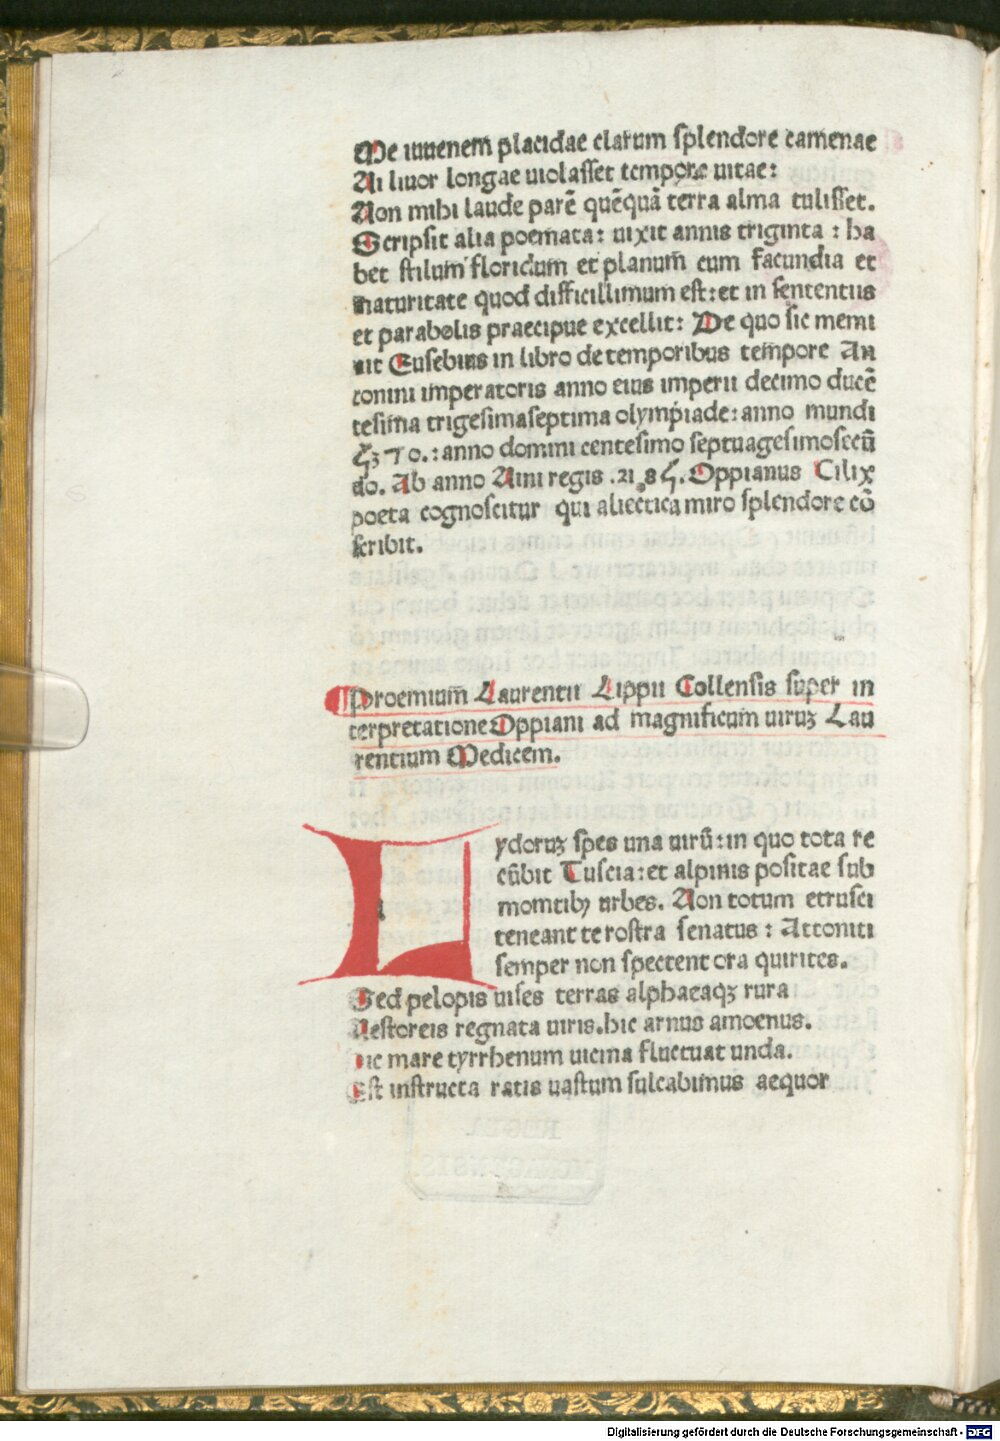 Me iuuenem placidae clarum splendore camenae
Ni liuor longae uiolasset tempore uitae:
Non mihi laude parē quēquā terra alma tulisset.
Scripsit alia poemata: uixit annis triginta : ha
bet stilum floridum et planum cum facundia et
maturitate quod difficillimum est: et in sententiis
et parabolis praecipue excellit: De quo sic memi
nit Eusebius in libro de temporibus tempore An
tonini imperatoris anno eius imperii decimo ducē
tesima trigesimaseptima olympiade: anno mundi
5370.: anno domini centesimo septuagesimosecū
do. Ab anno Nini regis .2185. Oppianus Cilix
poeta cognoscitur qui aliectica miro splendore cō
scribit.
Proemium Laurentii Lippii Collensis super in
terpretatione Oppiani ad magnificum uiruꝫ Lau
rentium Medicem.
Lydoruꝫ spes una uirū: in quo tota re
cūbit Tuscia: et alpinis positae sub
montibꝫ urbes. Non totum etrusci
teneant te rostra senatus : Attoniti
semper non spectent ora quirites.
Sed pelopis uises terras alphaeaqꝫ rura
Nestoreis regnata uiris. hic arnus amoenus.
Hic mare tyrrhenum uicina fluctuat unda.
Est instructa ratis uastum sulcabimus aequor
Digitalisierung gefördert durch die Deutsche Forschungsgemeinschaft - DFG